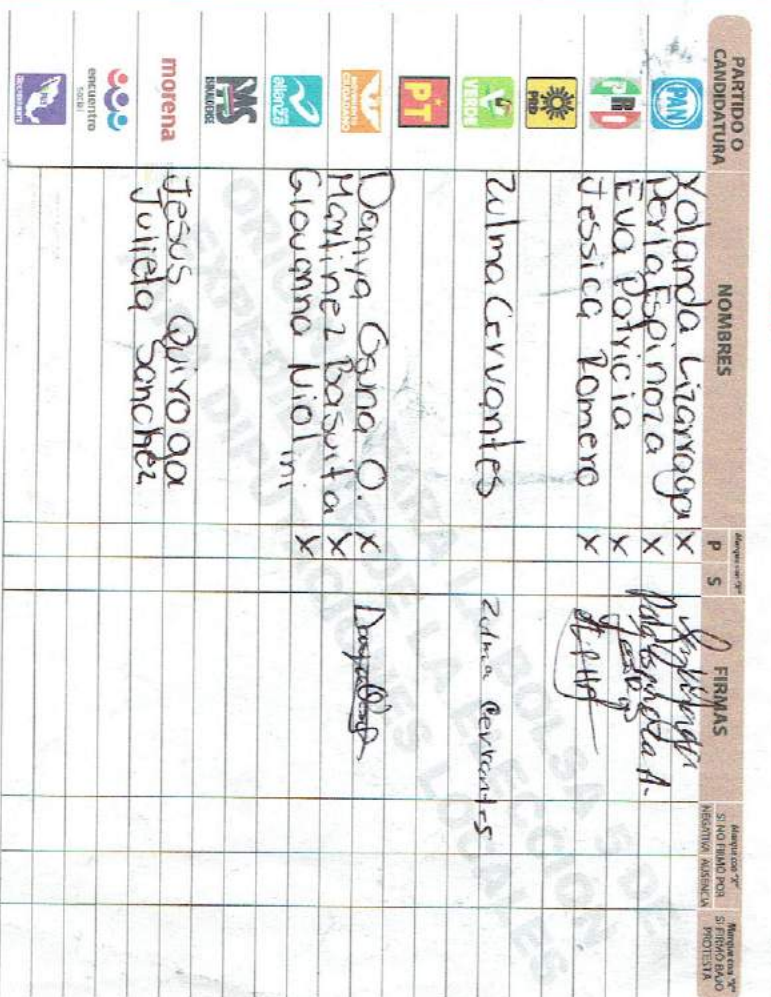 PARTIDO O
CANDIDATURA
NOMBRES
Marque con "X"
P S
FIRMAS
Marque con "X"
SI NO FIRMÓ POR
NEGATIVA AUSENCIA
Marque con "X"
SI FIRMÓ BAJO
PROTESTA
PAN
Yolanda Lizarraga X
Perla Espinoza X
PRI
Eva Patricia X
Jessica Romero X
PRD
VERDE
Zulma Cervantes Zulma Cervantes
PT
MOVIMIENTO
CIUDADANO
Danya Osuna O. X
Martinez Basurta X
Giovanna X
alianza
PAS
SINALOENSE
morena
Jesus Quiroga
Julieta Sanchez
encuentro
social
PARA LA BOLSA 5 DE
EXPEDIENTE DE LA ELECCIÓN
PARA DIPUTACIONES LOCALES